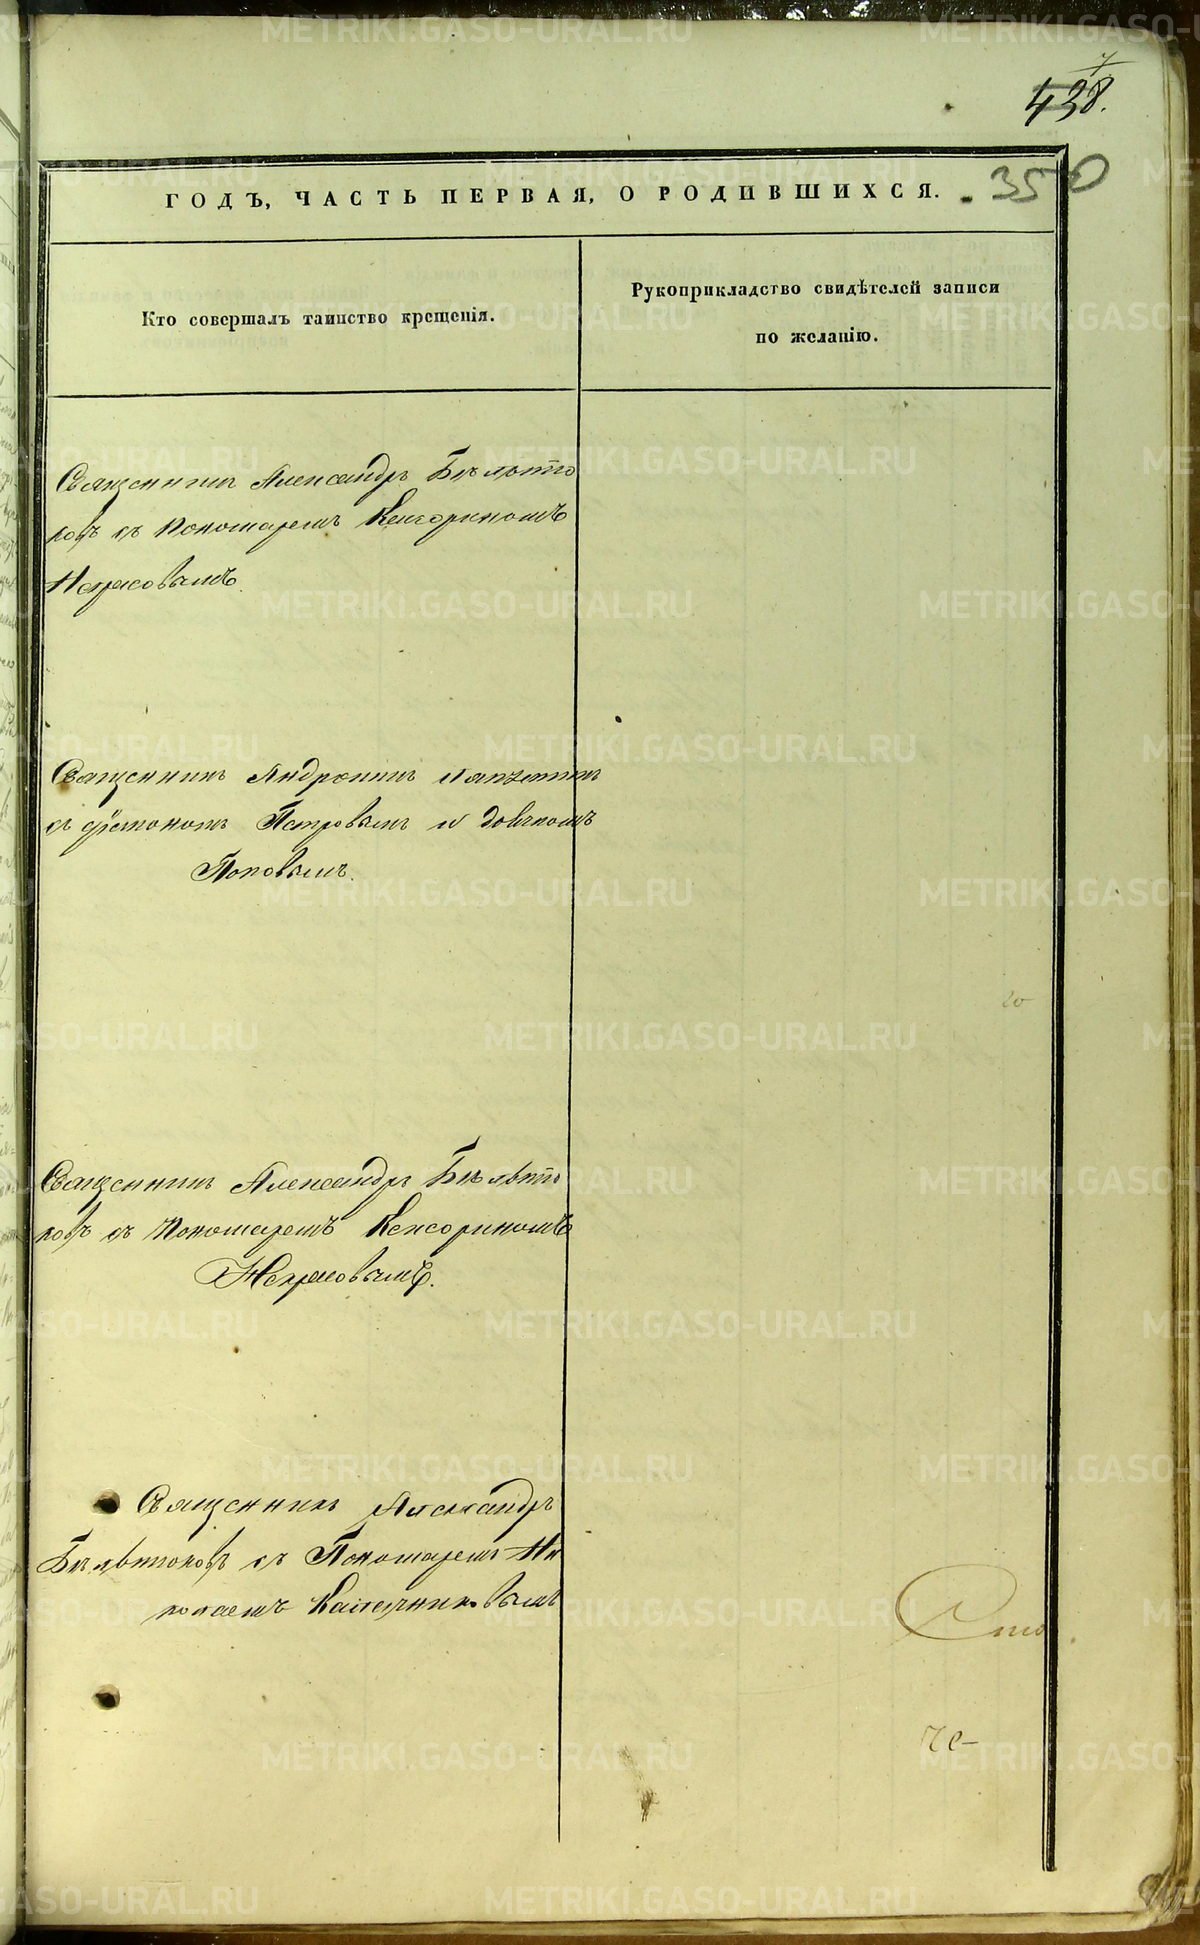 438.
7
350
ГОДЪ, ЧАСТЬ ПЕРВАЯ, О РОДИВШИХСЯ.
Кто совершалъ таинство крещенія.
Рукоприкладство свидѣтелей записи
по желанію.
Священникъ Александръ Бѣльтю
ковъ съ Пономаремъ Кенсориномъ
Некрасовымъ.
Священникъ Андроникъ
съ Діакономъ Петровымъ и дьячкомъ
Поповымъ.
Священникъ Александръ Бѣльтю
ковъ съ Пономаремъ Кенсориномъ
Некрасовымъ.
Священникъ Александръ
Бѣльтюковъ съ Пономаремъ Ни
колаемъ
METRIKI.GASO-URAL.RU